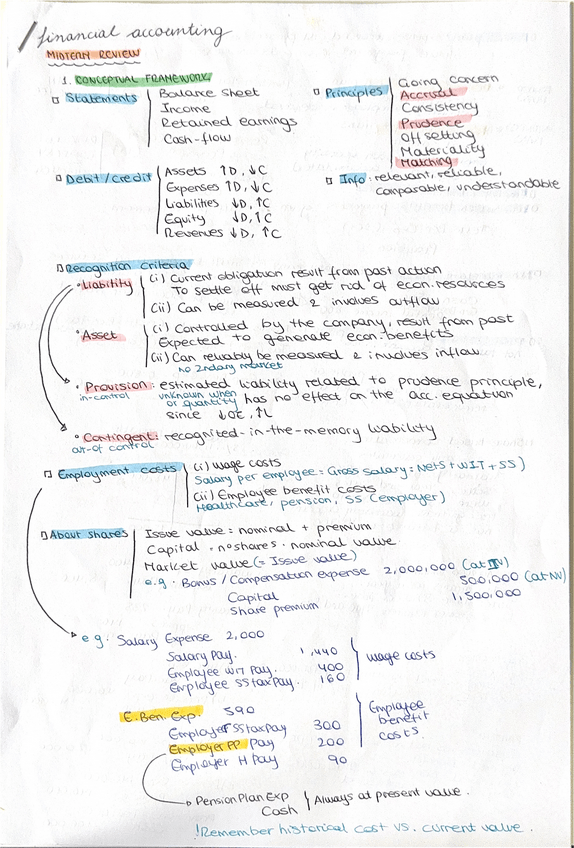 financial accounting
MIDTERM REVIEW
1. CONCEPTUAL FRAMEWORK
Statements
Balance sheet
Income
Retained earnings
Cash-flow
Principles
Going concern
Accrual
Consistency
Prudence
Off setting
Materiality
Matching
Debit/credit
Assets ↑D, ↓C
Expenses ↑D, ↓C
Liabilities ↓D, ↑C
Equity ↓D, ↑C
Revenues ↓D, ↑C
Info: relevant, reliable,
comparable, understandable
Recognition criteria
• Liability
(i) Current obligation result from past action
To settle off must get rid of econ. resources
(ii) Can be measured & involves outflow
• Asset
(i) Controlled by the company, result from past
Expected to generate econ. benefits
(ii) Can reliably be measured & involves inflow
no 2ndary market
• Provision: estimated liability related to prudence principle,
in-control
unknown when
or quantity
has no effect on the acc. equation
since ↓OE, ↑L
• Contingent: recognited-in-the-memory liability
out-of control
Employment costs
(i) Wage costs
Salary per employee = Gross Salary = NetS + WIT + SS)
(ii) Employee benefit costs
Healthcare, pension, SS (employer)
About shares
Issue value = nominal + premium
Capital = nºshares · nominal value
Market value (= Issue value)
e.g. Bonus / Compensation expense 2,000,000 (at IV)
Capital 500,000 (at NV)
Share premium 1,500,000
e.g: Salary Expense 2,000
Salary Pay. 1,440
Employee WIT Pay. 400
Employee SStaxPay. 160
Wage costs
E. Ben. Exp. 590
Employer SStaxPay 300
Employer PP Pay 200
Employer H Pay 90
Employee
benefit
costs.
Pension Plan Exp
Cash
Always at present value.
!Remember historical cost vs. current value.